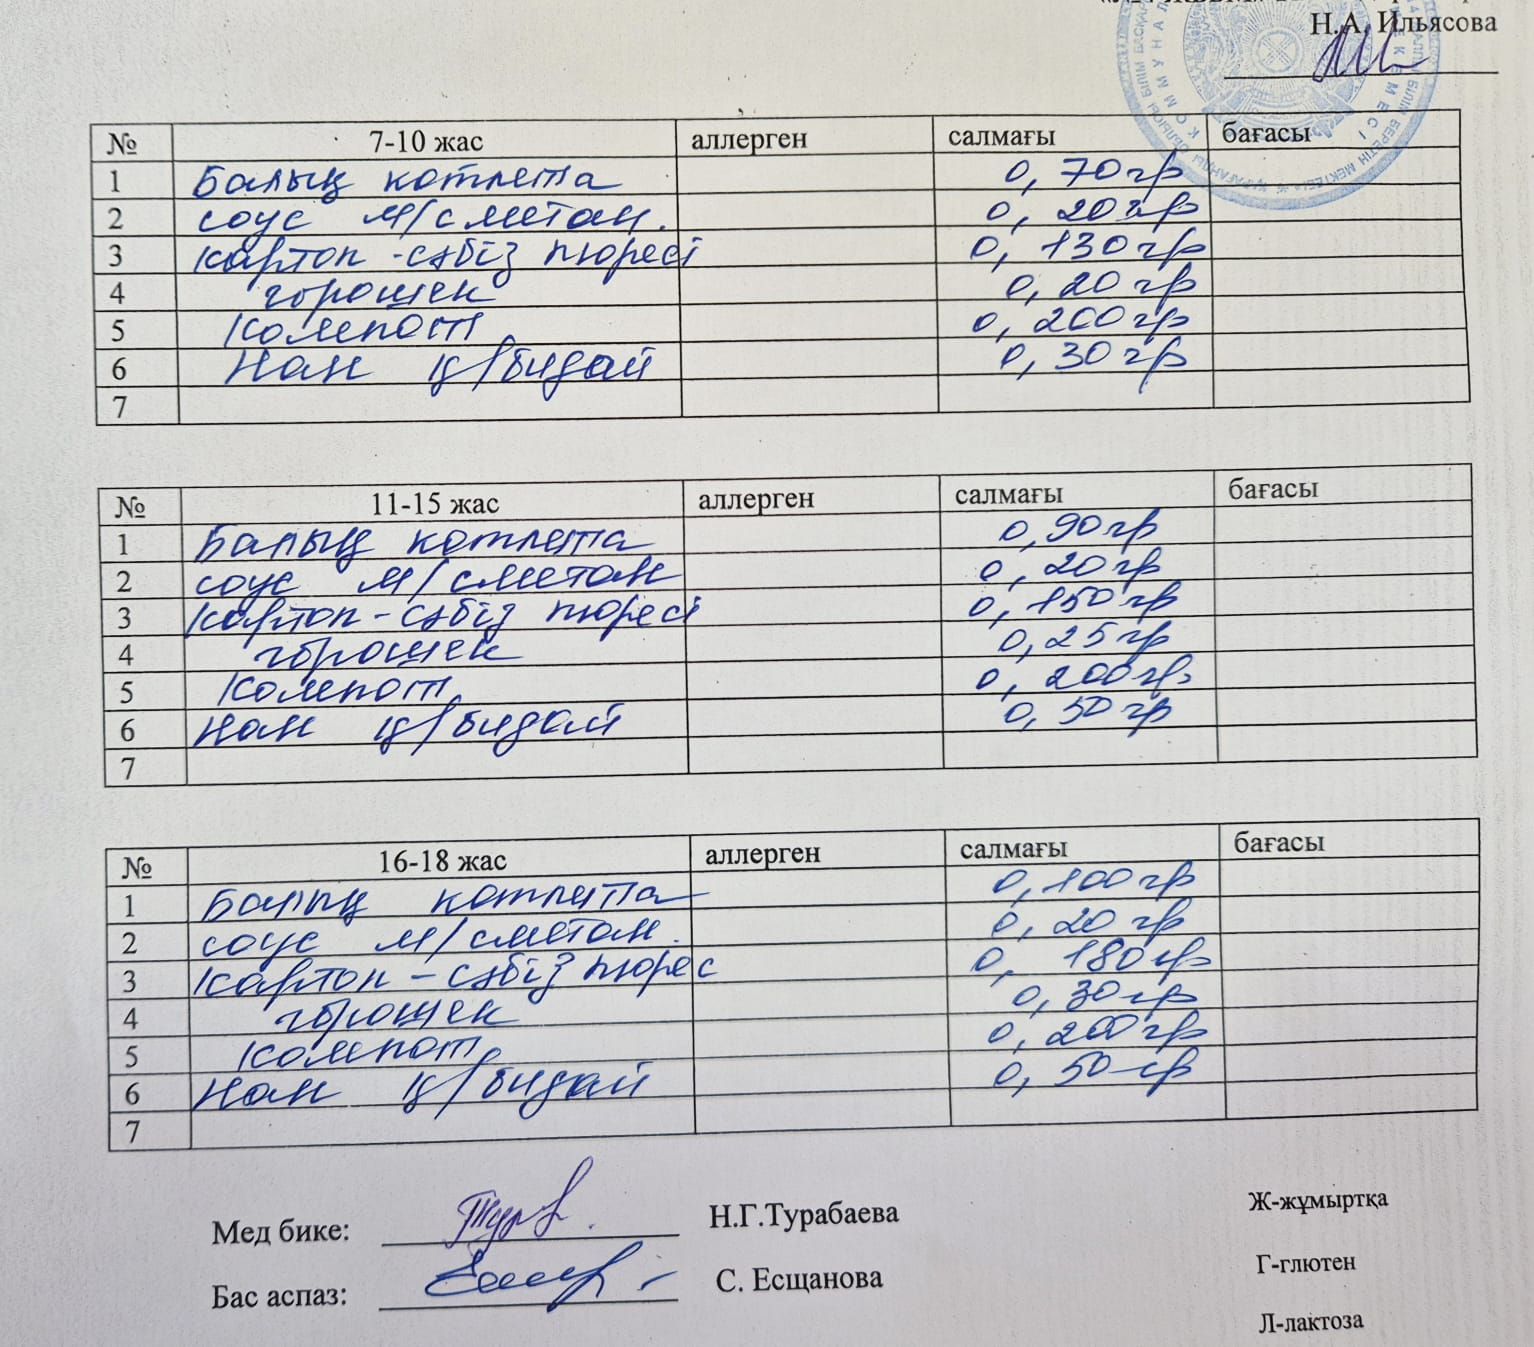 Н.А. Ильясова
№ 7-10 жас аллерген салмағы бағасы
1 Балық котлета 0,70гр
2 соус м/сметан. 0,20гр
3 картоп-сәбіз пюресі 0,130гр
4 горошек 0,20гр
5 Компот 0,200гр
6 Нан қ/бидай 0,30гр
7
№ 11-15 жас аллерген салмағы бағасы
1 Балық котлета 0,90гр
2 соус м/сметан 0,20гр
3 картоп-сәбіз пюресі 0,150гр
4 горошек 0,25гр
5 Компот 0,200гр
6 Нан қ/бидай 0,50гр
7
№ 16-18 жас аллерген салмағы бағасы
1 Балық котлета 0,100гр
2 соус м/сметан. 0,20гр
3 картоп-сәбіз пюрес 0,180гр
4 горошек 0,30гр
5 компот 0,200гр
6 Нан қ/бидай 0,50гр
7
Мед бике: Н.Г.Турабаева
Бас аспаз: С. Есщанова
Ж-жұмыртқа
Г-глютен
Л-лактоза